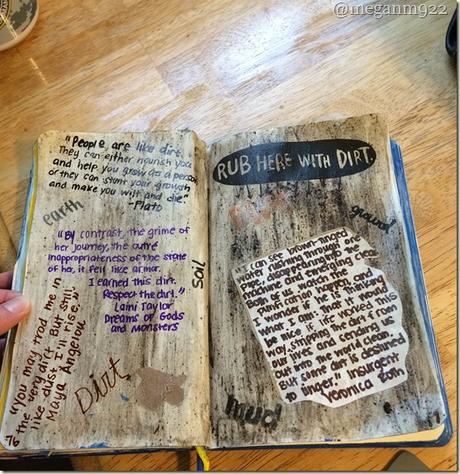 @meganm922
"People are like dirt.
They can either nourish you
and help you grow as a person
or they can stunt your growth
and make you wilt and die"
-Plato
earth
"By contrast, the grime of
her journey, the outré
inappropriateness of the state
of her, it felt like armor.
I earned this dirt.
Respect the dirt."
Laini Taylor
Dreams of Gods
and Monsters
soil
"You may trod me in
the very dirt But still,
like dust, I'll rise."
Maya Angelou
Dirt
76
RUB HERE WITH DIRT.
ground
I can see brown-tinged
water rushing through one
pipe, disappearing into the
machine and emerging clear.
Both of us watch the
purification happen, and
I wonder if he is thinking
what I am: that it would
be nice if life worked this
way, stripping the dirt from
our lives and sending us
out into the world clean.
But some dirt is destined
to linger. Insurgent
Veronica Roth
mud